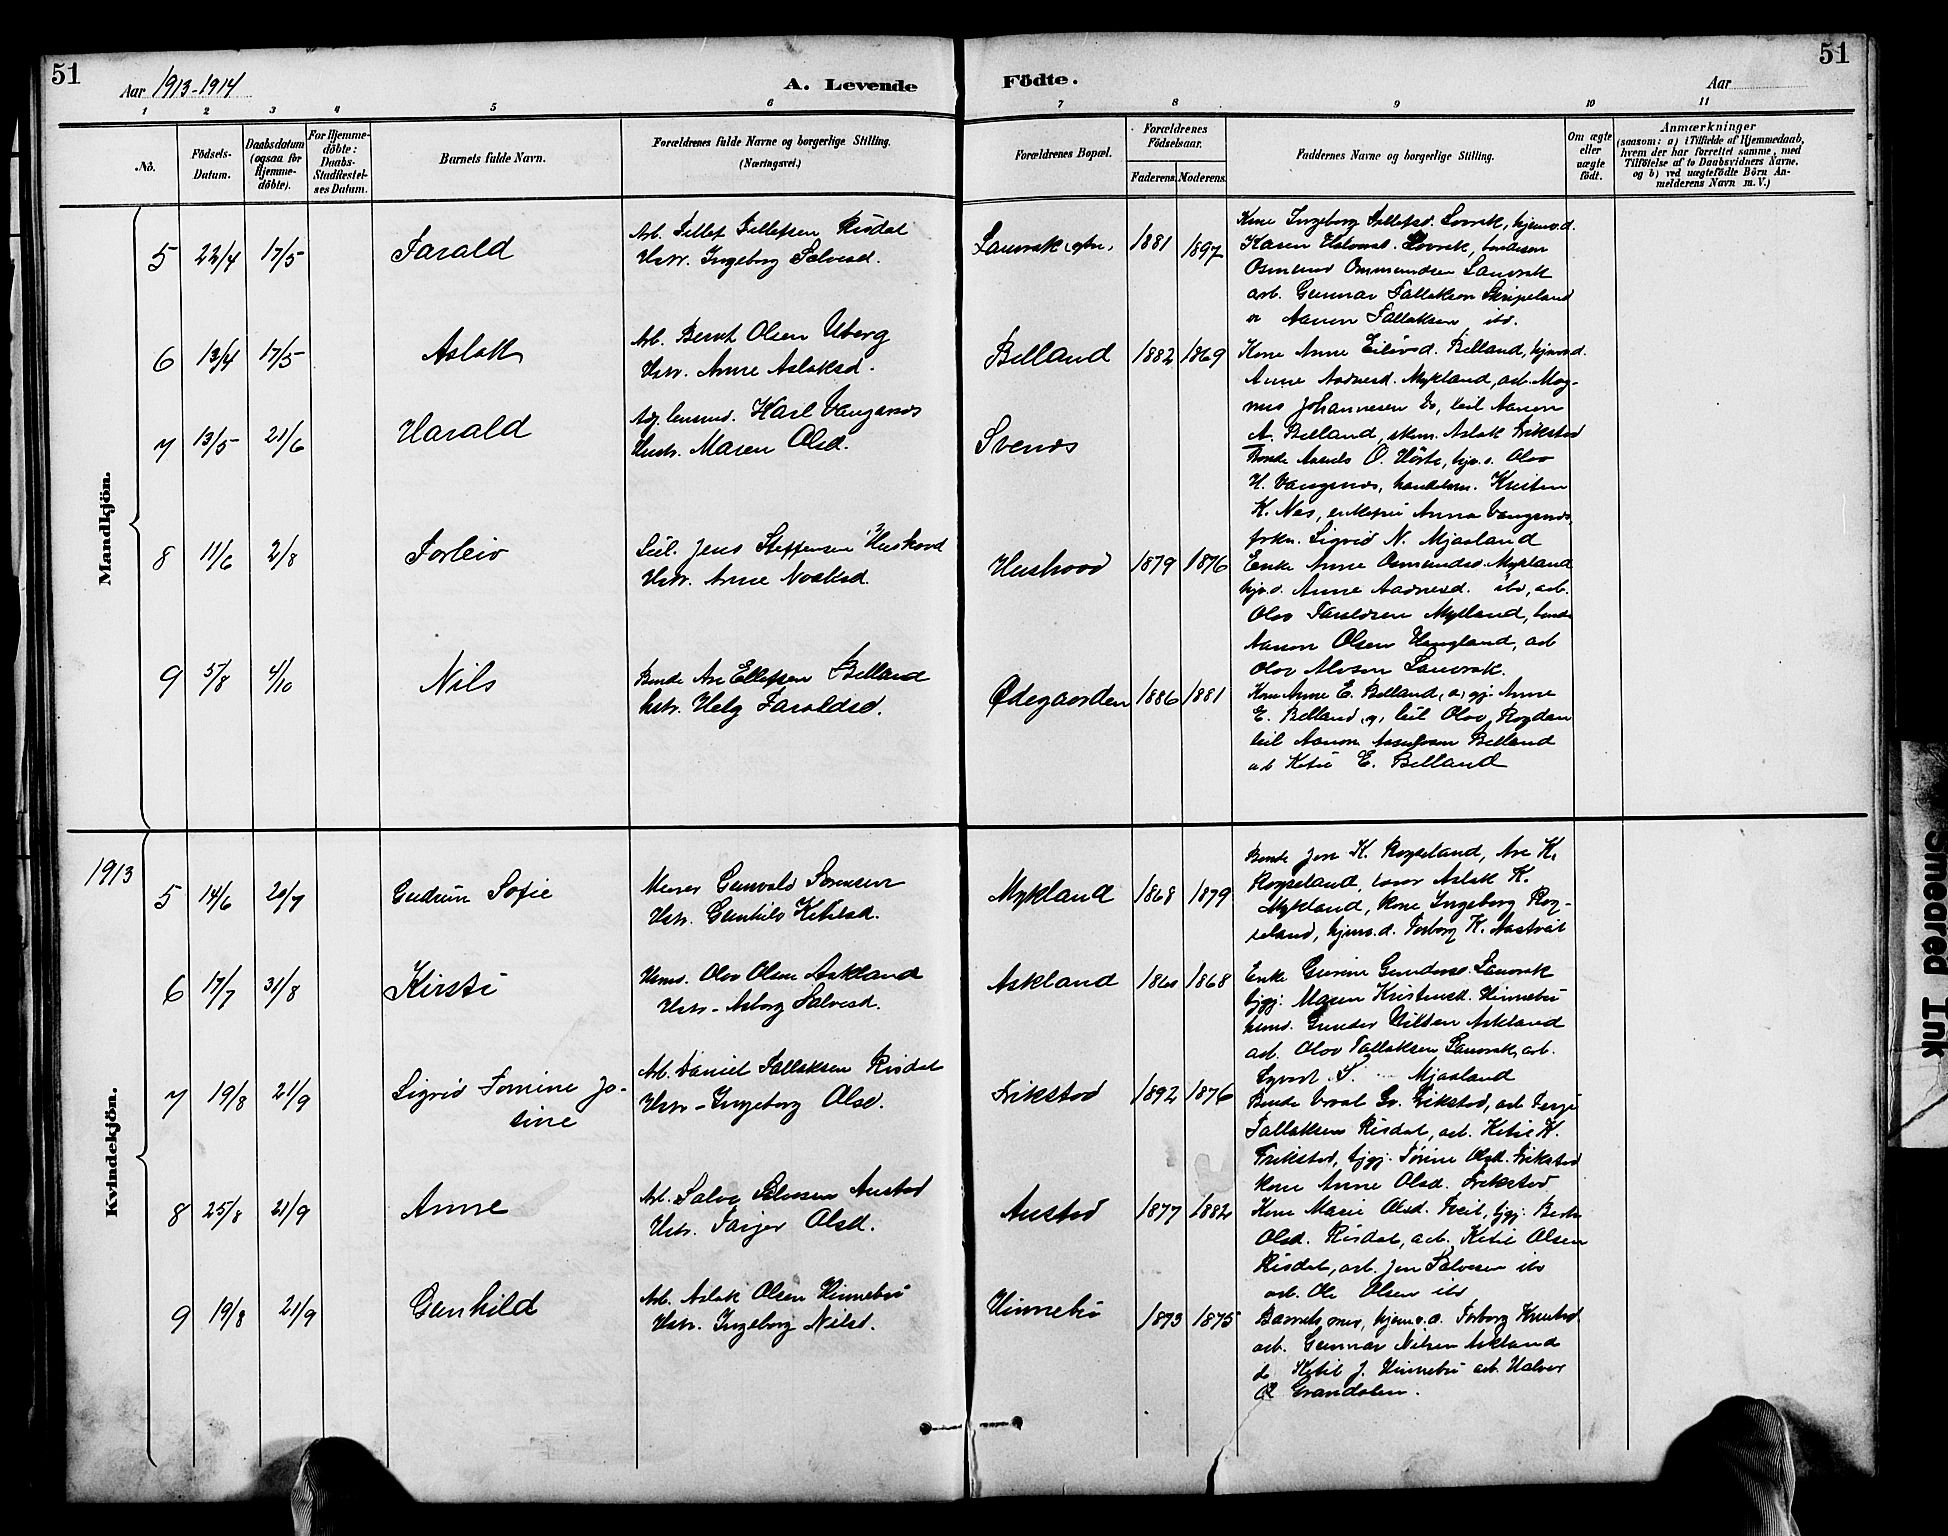 51
51
Aar 1913-1914
A. Levende
Födte.
Aar
1 2 3 4 5 6 7 8 9 10 11
No.
Födsels-
Datum.
Daabsdatum
(ogsaa for
Hjemme-
döbte).
For Hjemme-
döbte:
Daabs-
Stadfæstel-
ses Datum.
Barnets fulde Navn.
Forældrenes fulde Navne og borgerlige Stilling.
(Næringsvei.)
Forældrenes Bopæl.
Forældrenes
Födselsaar.
Faderens.
Moderens.
Faddernes Navne og borgerlige Stilling.
Om ægte
eller
uægte
födt.
Anmærkninger
(saasom: a) i Tilfælde af Hjemmedaab,
hvem der har forrettet samme, med
Tilföielse af to Daabsvidners Navne,
og b) ved uægtefödte Börn An-
melderens Navn m. V.)
Mandkjön.
5 22/4 17/5 Tarald
Arb. Tellef Tellefsen Risdal
Hstr. Ingeborg Salvesd.
1881 1897
Kone Ingeborg Lovrak, hjemv.d.
Karen Lovrak,
Osmund Ommundsen Lauvrak
arb. Gunnar Tallaksen Skripeland
Aanon Tallaksen ibd.
6 13/4 17/5 Aslak
Arb. Bernt Olsen Uberg
Hstr. Anne Aslaksd.
Belland 1882 1869
Kone Anne Eilevsd. Belland, hjemv.d.
Anne Aadnesd. Mykland, arb. Mag-
nus Johannesen do, leil Aanon
A. Belland, Aslak Frikstad
7 13/5 21/6 Harald
Karl Vangsnes
Hustr. Maren Olsd.
Svenes
Bonde O. Olav
H. Vangsnes, handelsm. Kristen
K. Nes, Anna Vangsnes,
frkn. Sigrid N. Mjaaland
8 11/6 2/8 Torleiv
Leil. Jens Steffensen Hushovd
Hstr. Anne Noaksd.
Hushovd 1879 1876
Enke Anne Osmundsd. Mykland
hjv.d. Anne Aadnesd. ibd, arb.
Olav Taraldsen Mykland, bonde
Aanon Olsen Haugland, arb
Olav Alvsen Lauvrak.
9 5/8 4/10 Nils
Bonde Are Ellefsen Belland
hstr. Helg Taraldsd.
Ødegaarden 1886 1881
Kone Anne E. Belland, Anne
E. Belland, leil Olav Rogdan
leil Aanon Belland
arb Ketil E. Belland
1913
Kvindekjön.
5 14/6 20/7 Gudrun Sofie
Murer Gunvald Sørensen
Hstr. Gunhild Ketilsd.
Mykland 1868 1879
Bonde Jon K. Røyseland, Are K.
Røyseland, Aslak K.
Mykland, kone Ingeborg Røy-
seland, hjemv.d. Torborg K. Aastveit
6 17/7 31/8 Kirsti
Olav Olsen Askland
Hstr. Asborg Salvesd.
Askland 1868
Enke Gurine Gundersd. Lauvrak
tjpj: Maren Kristensd. Hinnebu
Gunder Nilsen Askland
arb. Olav Tallaksen Lauvrak, arb.
Mjaaland
7 19/8 21/9 Sigrid Tomine Jo-
sine
Arb. Daniel Tallaksen Risdal
Hstr. Ingeborg Olsd.
Frikstad 1892 1876
Bonde Gv. Frikstad, arb Terje
Tallaksen Risdal, arb. Ketil K.
Frikstad, tjpj. Olsd. Frikstad
kone Anne Olsd. Frikstad
8 25/8 21/9 Anne
Arb. Salve Salvesen Austad
Hstr. Tarjer Olsd.
Austad 1877 1882
Kone Marie Olsd. tjpj:
Olsd. Risdal, arb. Ketil Olsen
Risdal, arb. Jon Salvesen ibd
arb. Ole Olsen ibd
9 19/8 21/9 Gunhild
Arb. Aslak Olsen Hinnebu
Hstr. Ingeborg Nilsd.
Hinnebu 1873 1875
Barnets mor, hjemv.d. Torborg Knutsd.
arb. Gunnar Nilsen Askland
do Ketil J. Hinnebu arb. Halvor
O. Grandalen.
Smeared Ink